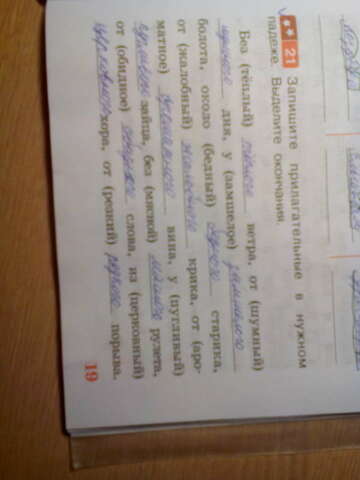 21 Запишите прилагательные в нужном
падеже. Выделите окончания.
Без (тёплый) тёплого ветра, от (шумный)
шумного дня, у (замшелое) замшелого
болота, около (бедный) бедного старика,
от (жалобный) жалобного крика, от (аро-
матное) ароматного вина, у (пугливый)
пугливого зайца, без (мясной) мясного рулета,
от (обидное) обидного слова, из (церковный)
церковного хора, от (резкий) резкого порыва.
19